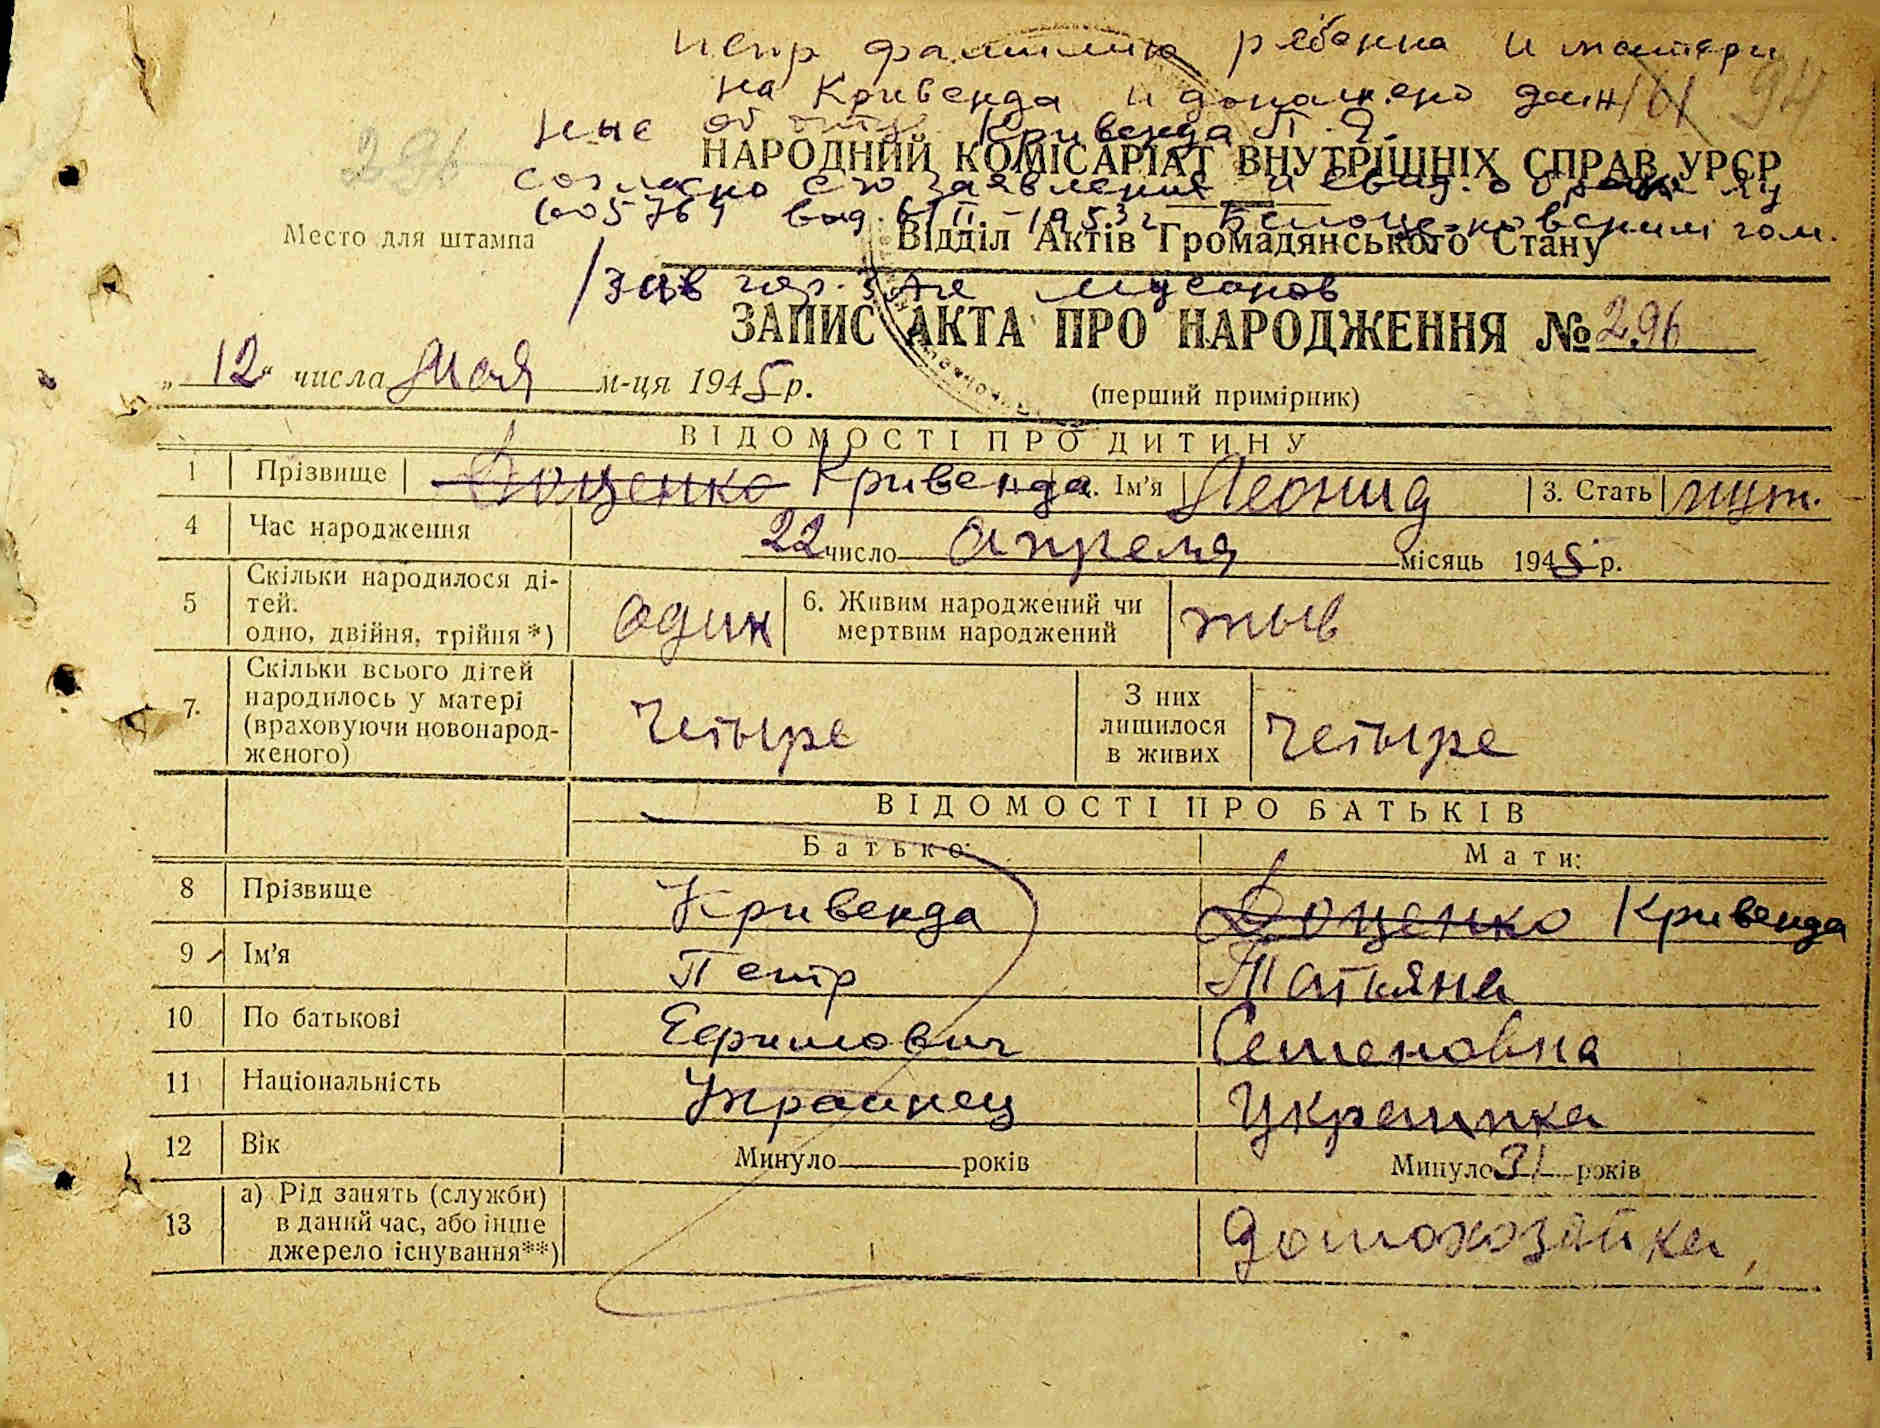 испр фамилию ребенка и матери
на Кривенда и дополнено дан 161 94
ные об отце Кривенда П. Е.
296
НАРОДНИЙ КОМІСАРІАТ ВНУТРІШНІХ СПРАВ УРСР
согласно его заявления и свид. о браке
605769 выд. 6/II-1953г Белоцерковским гом.
Место для штампа
Відділ Актів Громадянського Стану
/зав гор. ЗАГС
ЗАПИС АКТА ПРО НАРОДЖЕННЯ № 296
„12“ числа Мая м-ця 1945 р.
(перший примірник)
ВІДОМОСТІ ПРО ДИТИНУ
1 Прізвище Доценко Кривенда 2. Ім'я Леонид 3. Стать муж.
4 Час народження 22 число апреля місяць 1945 р.
5 Скільки народилося ді-
тей.
одно, двійня, трійня *) один 6. Живим народжений чи
мертвим народжений жив
7. Скільки всього дітей
народилось у матері
(враховуючи новонарод-
женого) четыре З них
лишилося
в живих четыре
ВІДОМОСТІ ПРО БАТЬКІВ
Батько: Мати:
8 Прізвище Кривенда Доценко Кривенда
9 Ім'я Петр Татьяна
10 По батькові Ефимович Семеновна
11 Національність Украинец Украинка
12 Вік Минуло років Минуло 31 років
13 а) Рід занять (служби)
в даний час, або інше
джерело існування**) домохозяйка